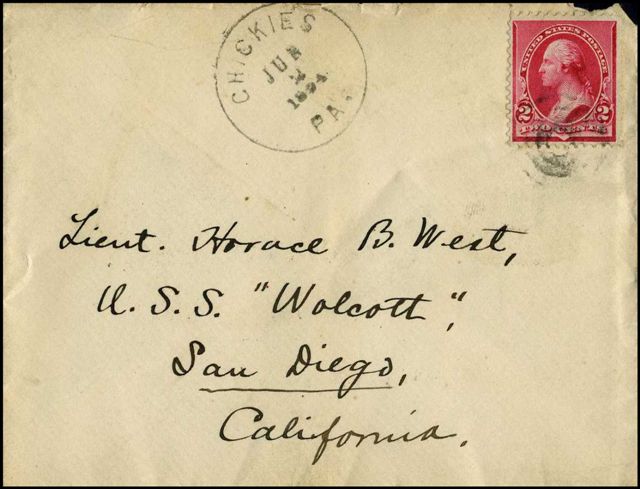 CHICKIES
JUL
1894
PA.
UNITED STATES POSTAGE
2 2
Lieut. Horace B. West,
U. S. S. "Wolcott",
San Diego,
California.